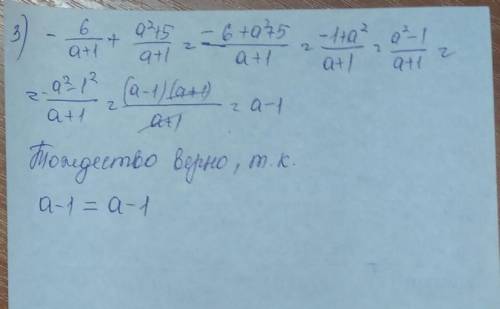 3) - 6/(a+1) + (a²+5)/(a+1) = (-6+a²+5)/(a+1) = (-1+a²)/(a+1) = (a²-1)/(a+1) =
= (a²-1²)/(a+1) = ((a-1)(a+1))/(a+1) = a-1
Тождество верно, т.к.
a-1 = a-1